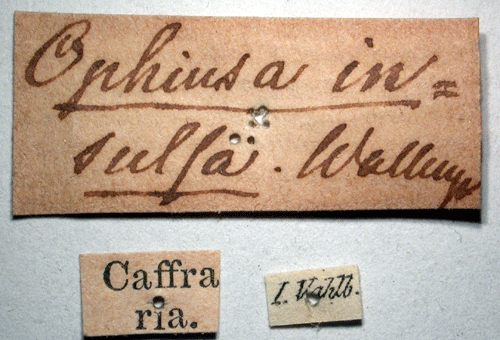 Ophiusa in=
sulsa. Wallengr
Caffra
ria.
J. Wahlb.